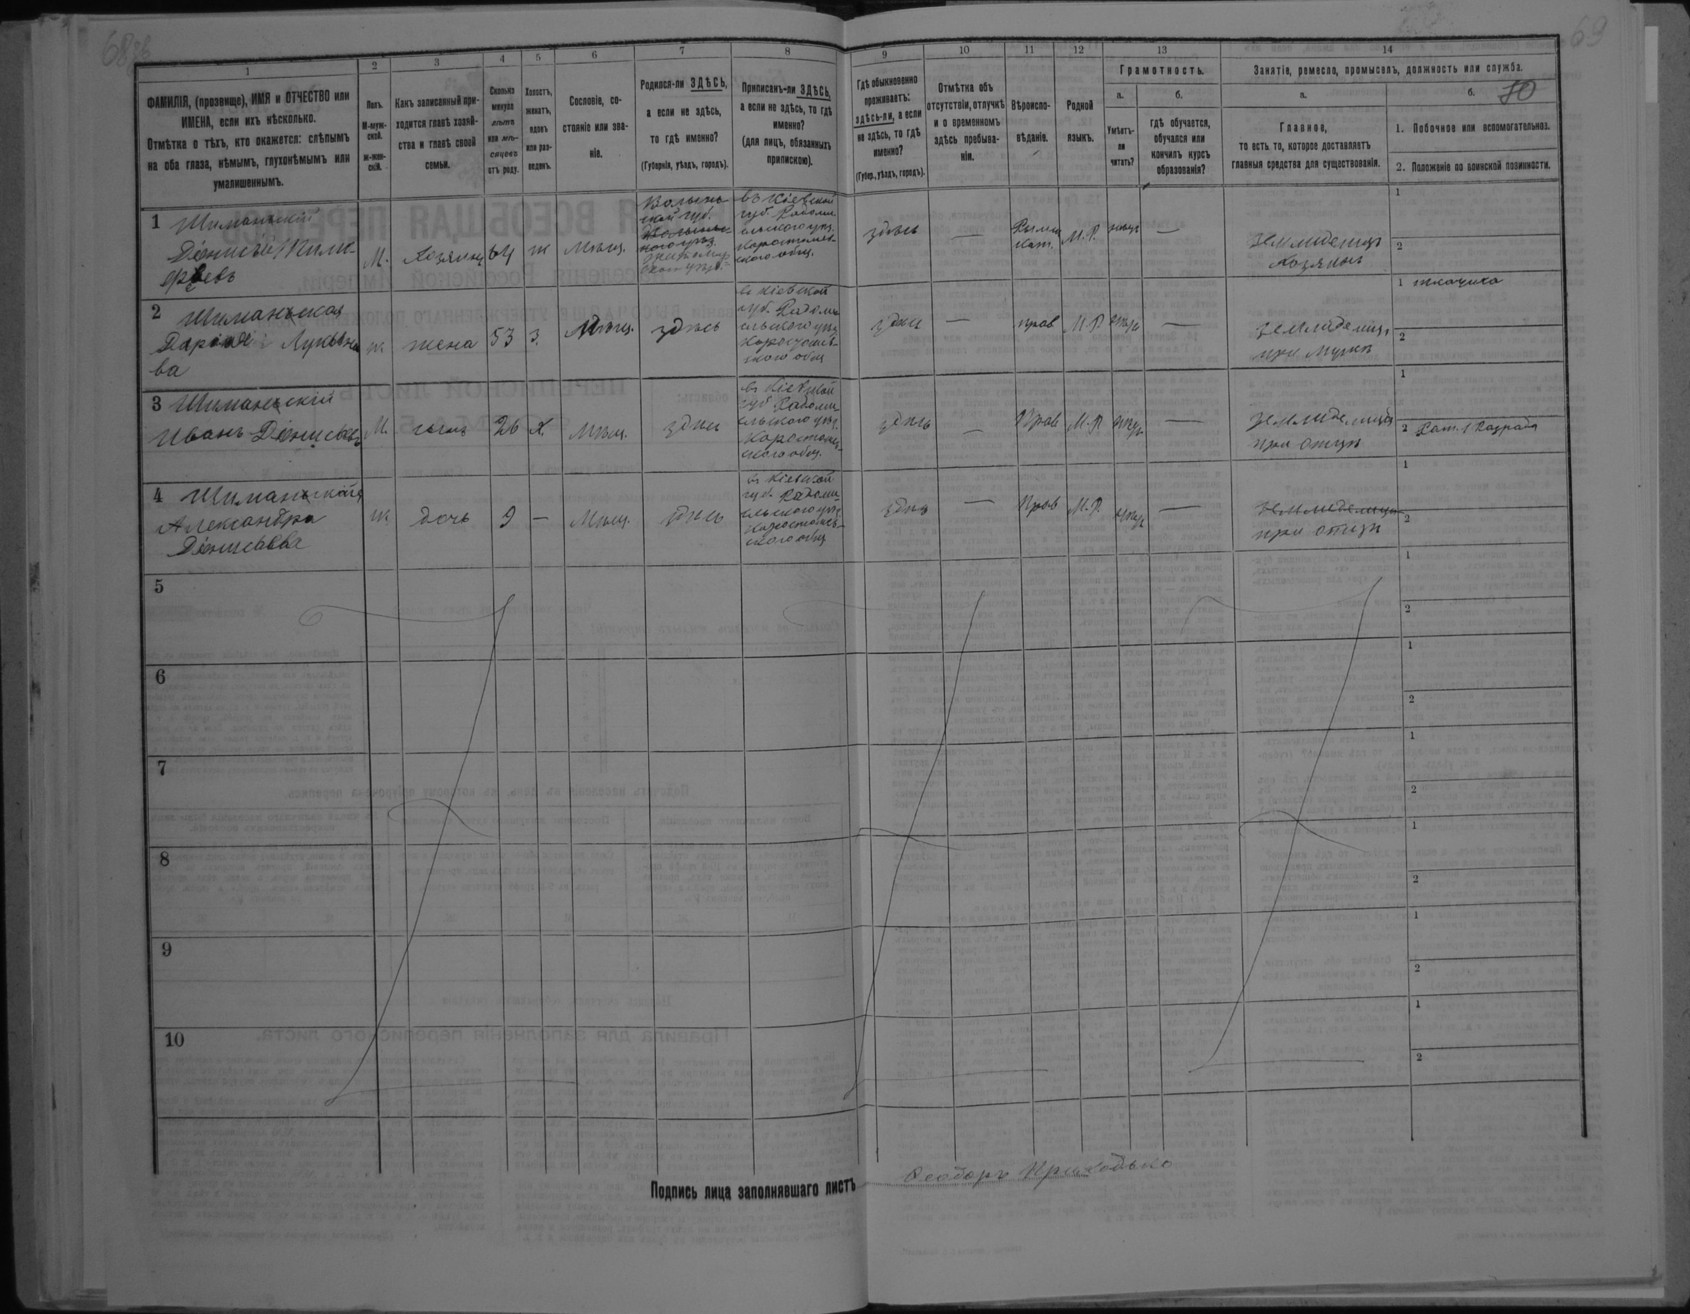 68об
69
70
1
2
3
4
5
6
7
8
9
10
11
12
13
14
ФАМИЛІЯ, (прозвище), ИМЯ и ОТЧЕСТВО или
ИМЕНА, если ихъ нѣсколько.
Отмѣтка о тѣхъ, кто окажется: слѣпымъ
на оба глаза, нѣмымъ, глухонѣмымъ или
умалишеннымъ.
Полъ.
М-муж-
ской.
ж-жен-
скій.
Какъ записанный при-
ходится главѣ хозяй-
ства и главѣ своей
семьи.
Сколько
минуло
лѣтъ
или мѣ-
сяцевъ
отъ роду.
Холостъ,
женатъ,
вдовъ
или раз-
веденъ.
Сословіе, со-
стояніе или зва-
ніе.
Родился-ли ЗДѢСЬ,
а если не здѣсь,
то гдѣ именно?
(Губернія, уѣздъ, городъ).
Приписанъ-ли ЗДѢСЬ,
а если не здѣсь, то гдѣ
именно?
(для лицъ, обязанныхъ
припискою).
Гдѣ обыкновенно
проживаетъ:
здѣсь-ли, а если
не здѣсь, то гдѣ
именно?
(Губер., уѣздъ, городъ).
Отмѣтка объ
отсутствіи, отлучкѣ
и о временномъ
здѣсь пребыва-
ніи.
Вѣроиспо-
вѣданіе.
Родной
языкъ.
Грамотность.
а.
Умѣетъ-
ли
читать?
б.
гдѣ обучается,
обучался или
кончилъ курсъ
образованія?
Занятіе, ремесло, промыселъ, должность или служба.
а.
Главное,
то есть то, которое доставляетъ
главныя средства для существованія.
б.
1. Побочное или вспомогательное.
2. Положеніе по воинской повинности.
1 Шиманскій
М.
Хозяинъ
64
ж
Мѣщ.
Волынь-
ской губ.
въ Кіевской
губ. Радомы-
сльского уѣз.
Коростышев-
ского общ.
здѣсь
—
Римск
Кат.
М. Р.
—
Земледелецъ
Хозяинъ
1
2
2 Шиманьская
ж
жена
53
з.
Мѣщ.
здѣсь
въ Кіевской
губ. Радомы-
сльского уѣз.
Коростышев-
ского общ
здѣсь
—
прав
М. Р
—
земледелец.
при мужѣ
1
2
3 Шиманскій
Иванъ Діонисьевъ
М.
сынъ
26
х.
Мѣщ.
здѣсь
въ Кіевской
губ Радомы-
сльского уѣз.
Коростышев-
ского общ.
здѣсь
—
Прав
М. Р
—
земледелецъ
при отцѣ
1
2 Рат. 1 Разряда
4 Шиманьская
Александра
Діонисьева
ж
дочь
9
—
Мѣщ.
здѣсь
въ Кіевской
губ. Радомы-
сльского уѣз
Коростышев-
ского общ
здѣсь
—
Прав
М. Р.
—
земледелец
при отцѣ
1
2
5
1
2
6
1
2
7
1
2
8
1
2
9
1
2
10
1
2
Подпись лица заполнявшаго листъ
Феодоръ Приходько